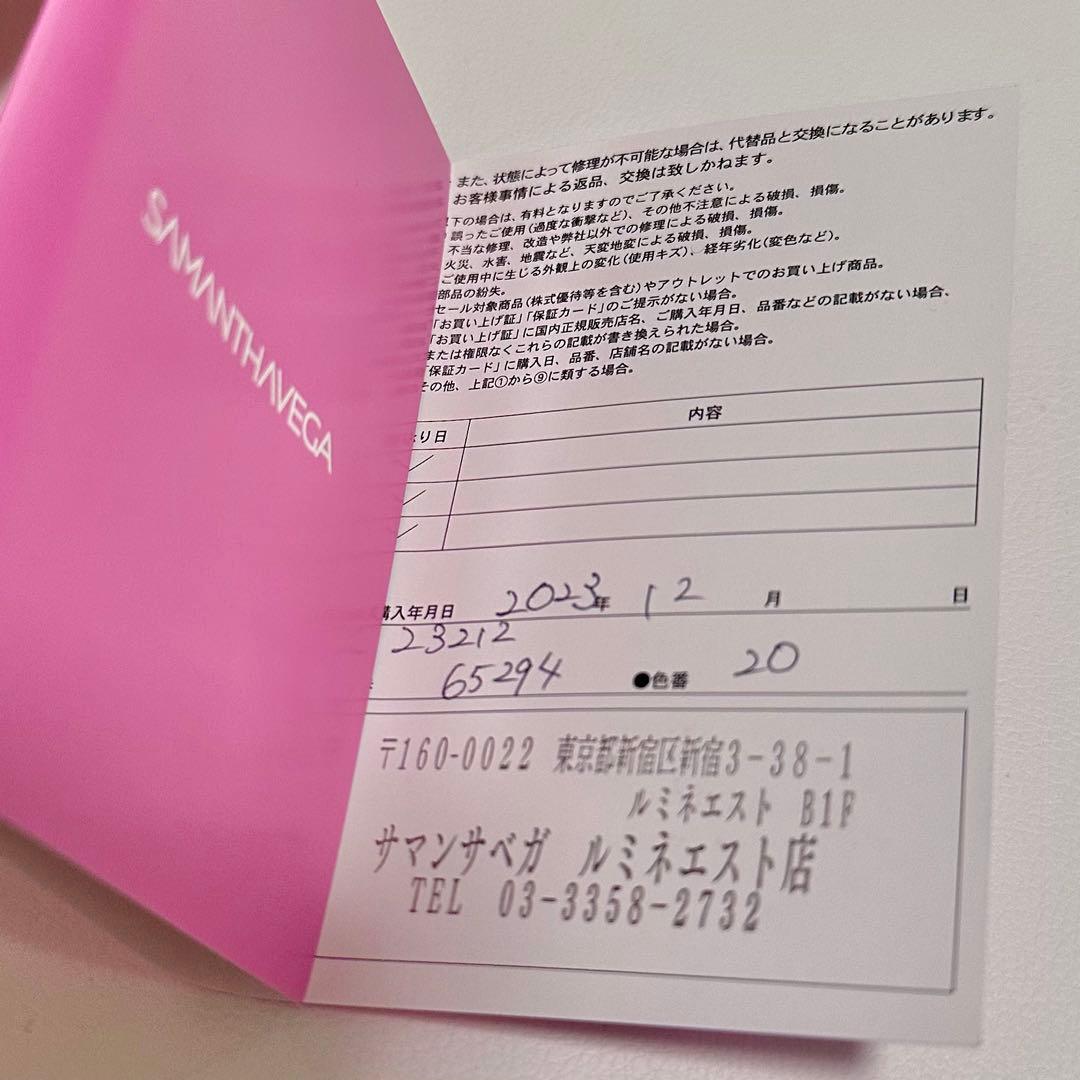 SAMANTHAVEGA
また、状態によって修理が不可能な場合は、代替品と交換になることがあります。
お客様事情による返品、交換は致しかねます。
下の場合は、有料となりますのでご了承ください。
誤ったご使用(過度な衝撃など)、その他不注意による破損、損傷。
不当な修理、改造や弊社以外での修理による破損、損傷。
火災、水害、地震など、天変地変による破損、損傷。
ご使用中に生じる外観上の変化(使用キズ)、経年劣化(変色など)。
部品の紛失。
セール対象商品(株式優待等を含む)やアウトレットでのお買い上げ商品。
「お買い上げ証」「保証カード」のご提示がない場合。
「お買い上げ証」に国内正規販売店名、ご購入年月日、品番などの記載がない場合、
または権限なくこれらの記載が書き換えられた場合。
「保証カード」に購入日、品番、店舗名の記載がない場合。
その他、上記①から⑨に類する場合。
り日 内容
購入年月日 2023年 12月 日
23212
65294 ●色番 20
〒160-0022 東京都新宿区新宿3-38-1
ルミネエスト B1F
サマンサベガ ルミネエスト店
TEL 03-3358-2732